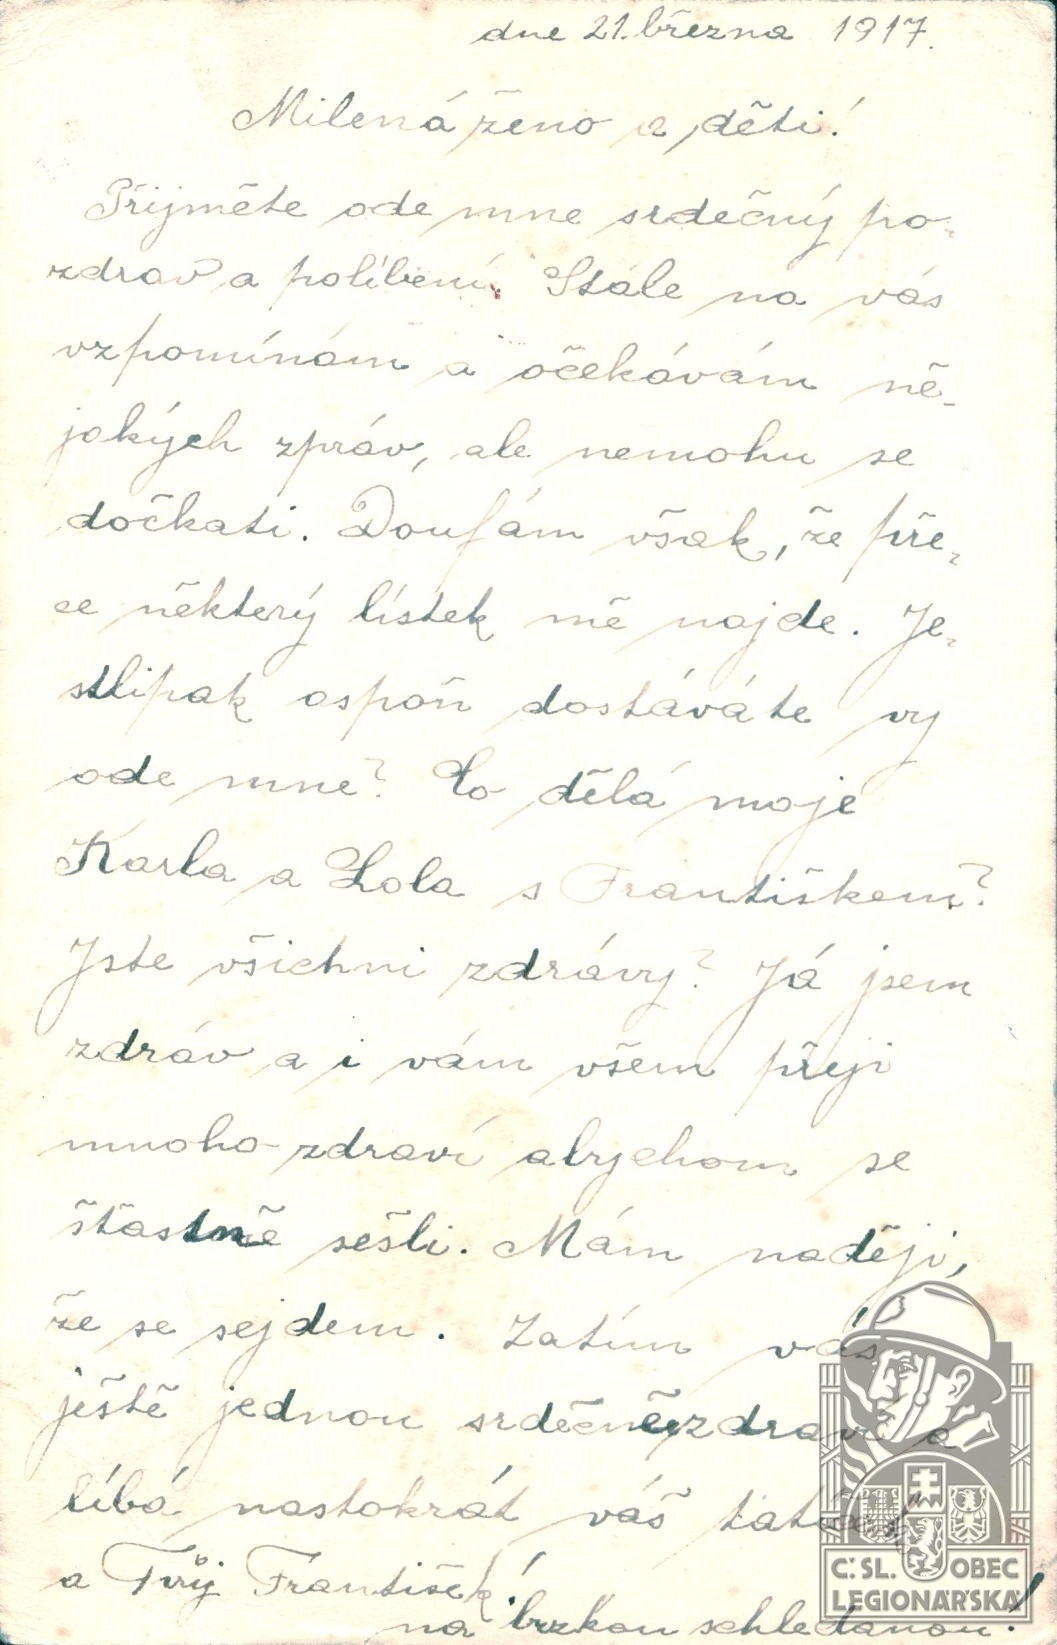 dne 21. března 1917.
Milená ženo a děti!
Přijměte ode mne srdečný po-
zdrav a políbení. Stále na vás
vzpomínám a očekávám ně-
jakých zpráv, ale nemohu se
dočkati. Doufám však, že pře-
ce některý lístek mě najde. Je-
stlipak aspoň dostáváte vy
ode mne? Co dělá moje
Karla a Lola s Františkem?
Jste všichni zdrávy? Já jsem
zdráv a i vám všem přeji
mnoho zdraví abychom se
šťastně sešli. Mám naději,
že se sejdem. Zatím vás
ještě jednou srdečně zdraví a
líbá nastokrát váš tatíček
a Tvůj František!
na brzkou schledanou!
Č.SL. OBEC
LEGIONÁŘSKÁ